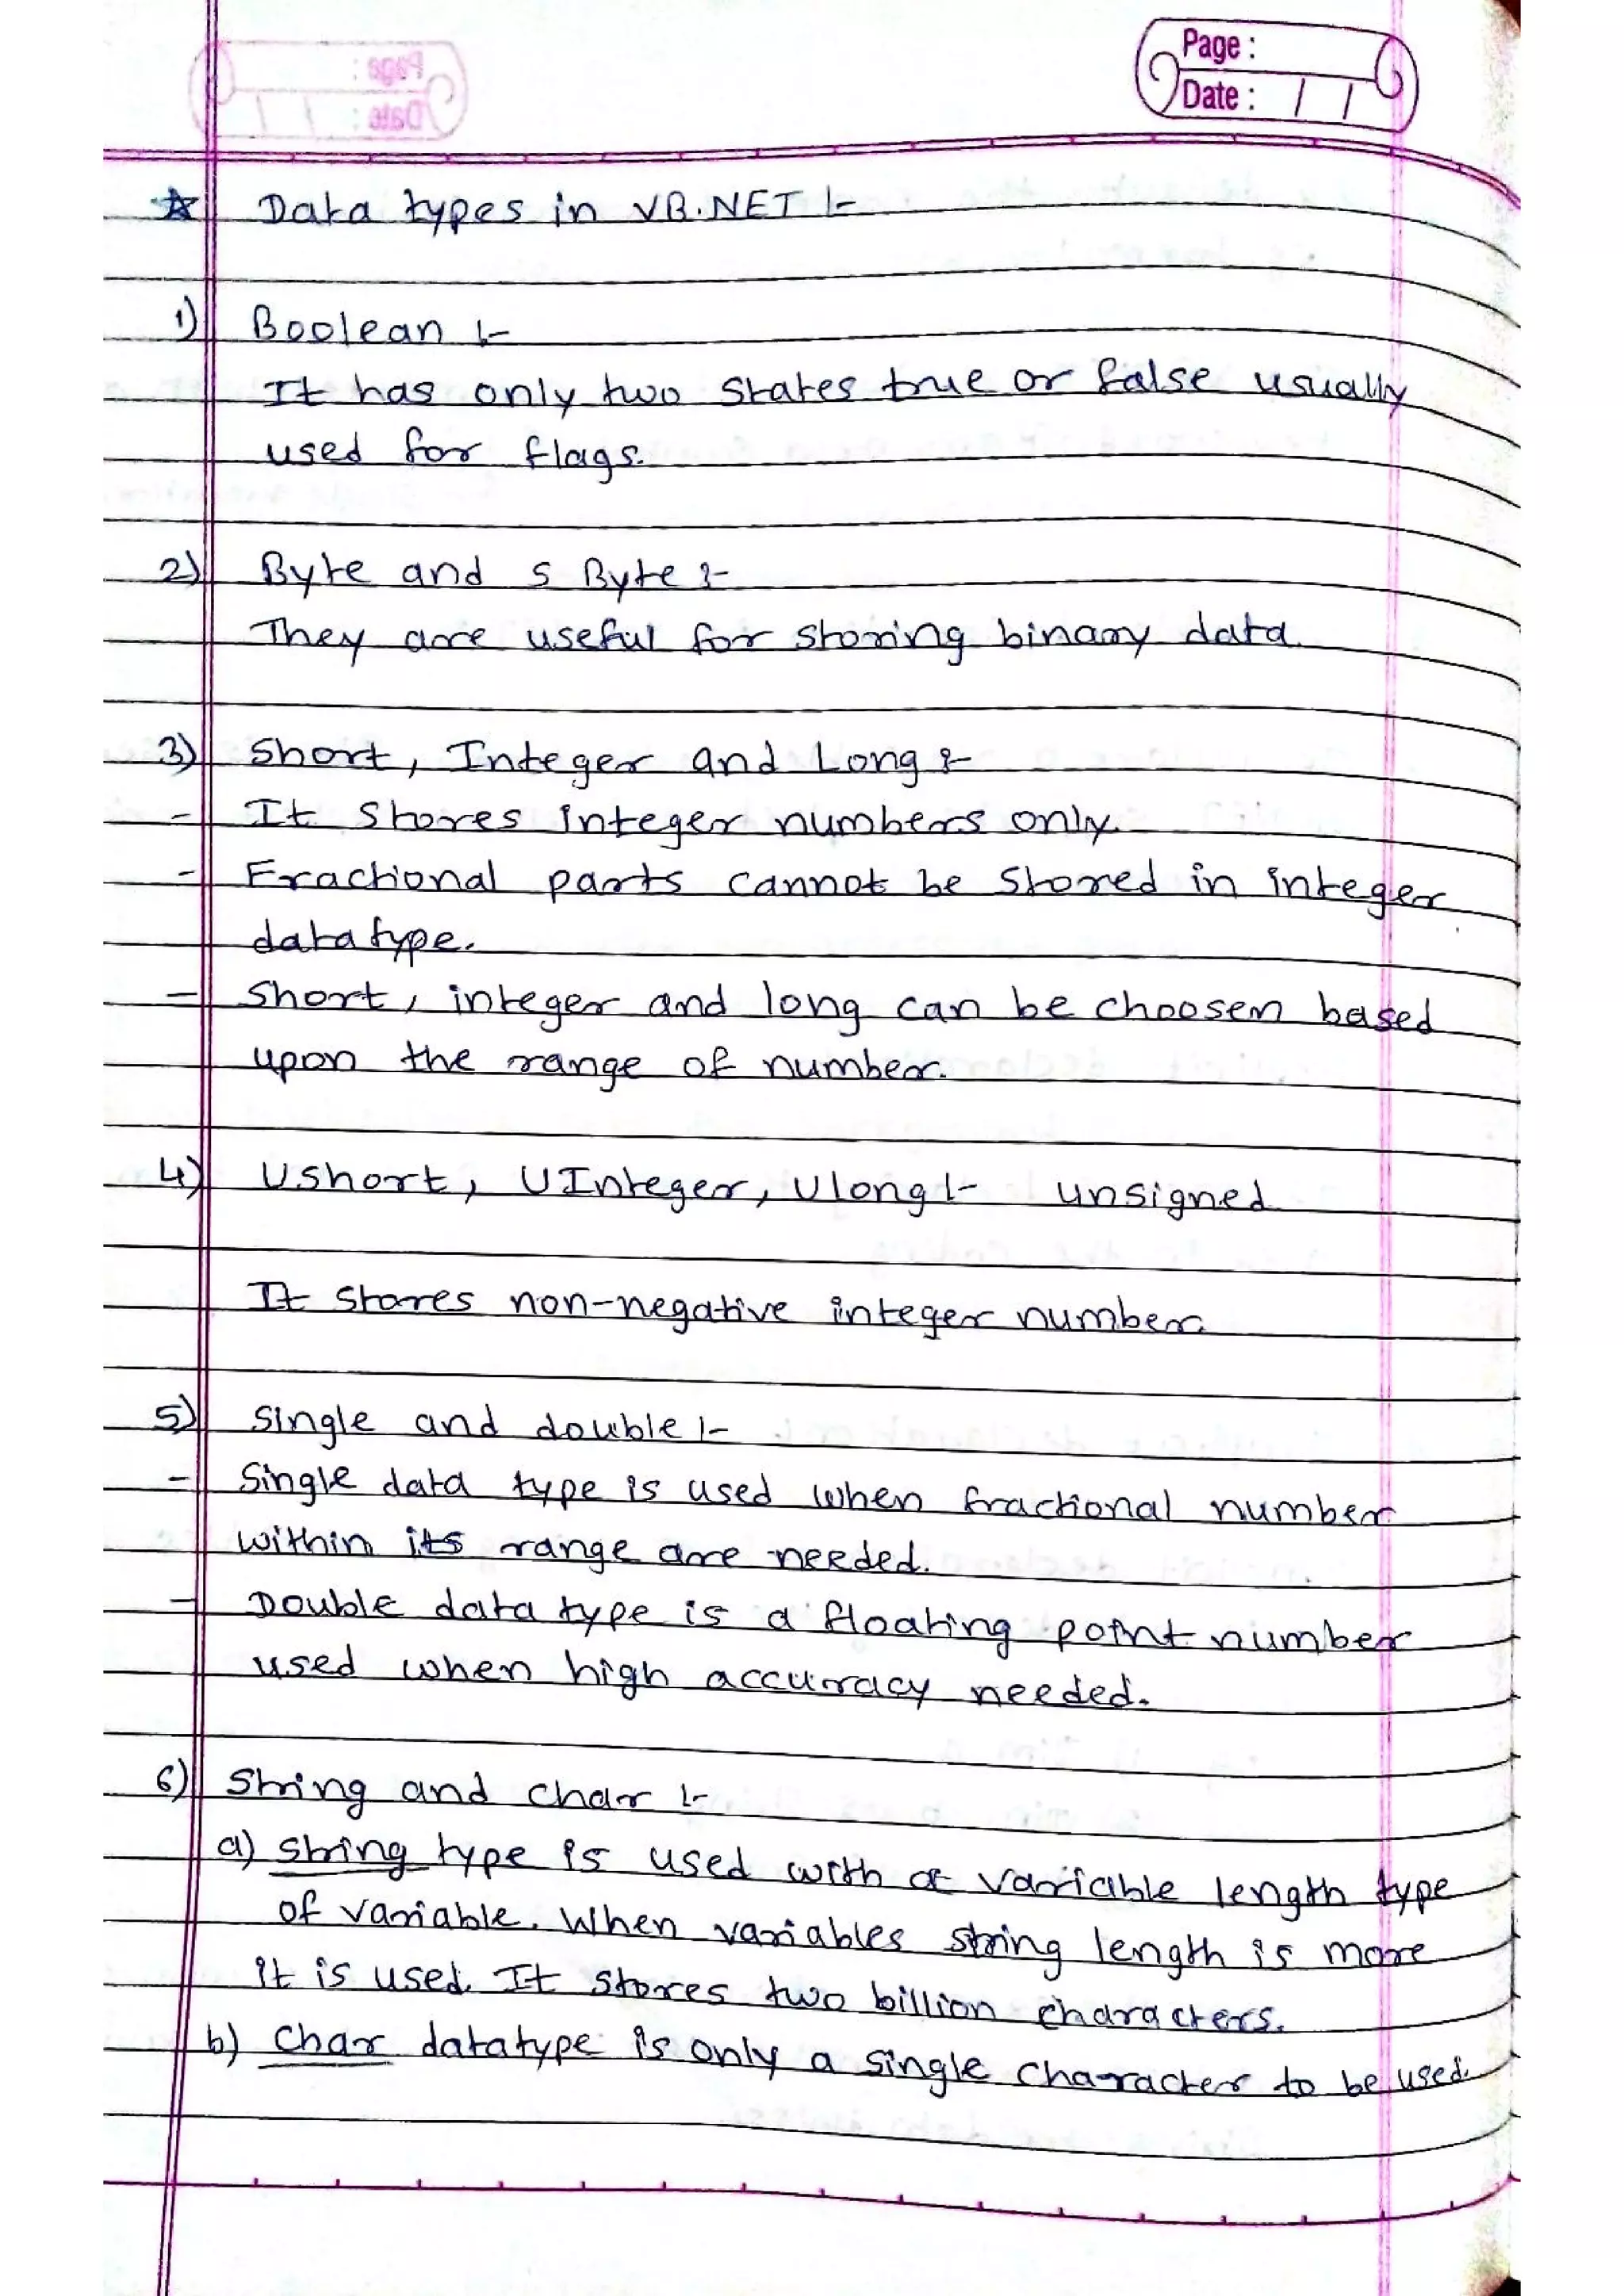 Page :
Date : / /
☆ Data types in VB.NET :-
1) Boolean :-
It has only two states true or false usually
used for flags.
2) Byte and s Byte :-
They are useful for storing binary data.
3) Short, Integer and Long :-
- It stores integer numbers only.
- Fractional parts cannot be stored in integer
datatype.
- Short, integer and long can be choosen based
upon the range of number.
4) Ushort, UInteger, Ulong :- unsigned
It stores non-negative integer number.
5) Single and double :-
- Single data type is used when fractional number
within its range are needed.
- Double data type is a floating point number
used when high accuracy needed.
6) String and char :-
a) string type is used with a variable length type
of variable. When variables string length is more
it is used. It stores two billion characters.
b) Char datatype is only a single character to be used.